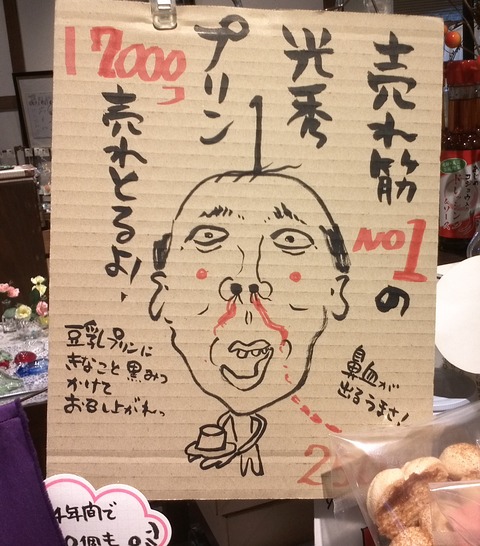 売れ筋
NO1の
光秀
プリン
17000コ
売れとるよ!
鼻血が
出るうまさ!
豆乳プリンに
きなこと黒みつ
かけて
お召し上がれっ
4年間で
個も